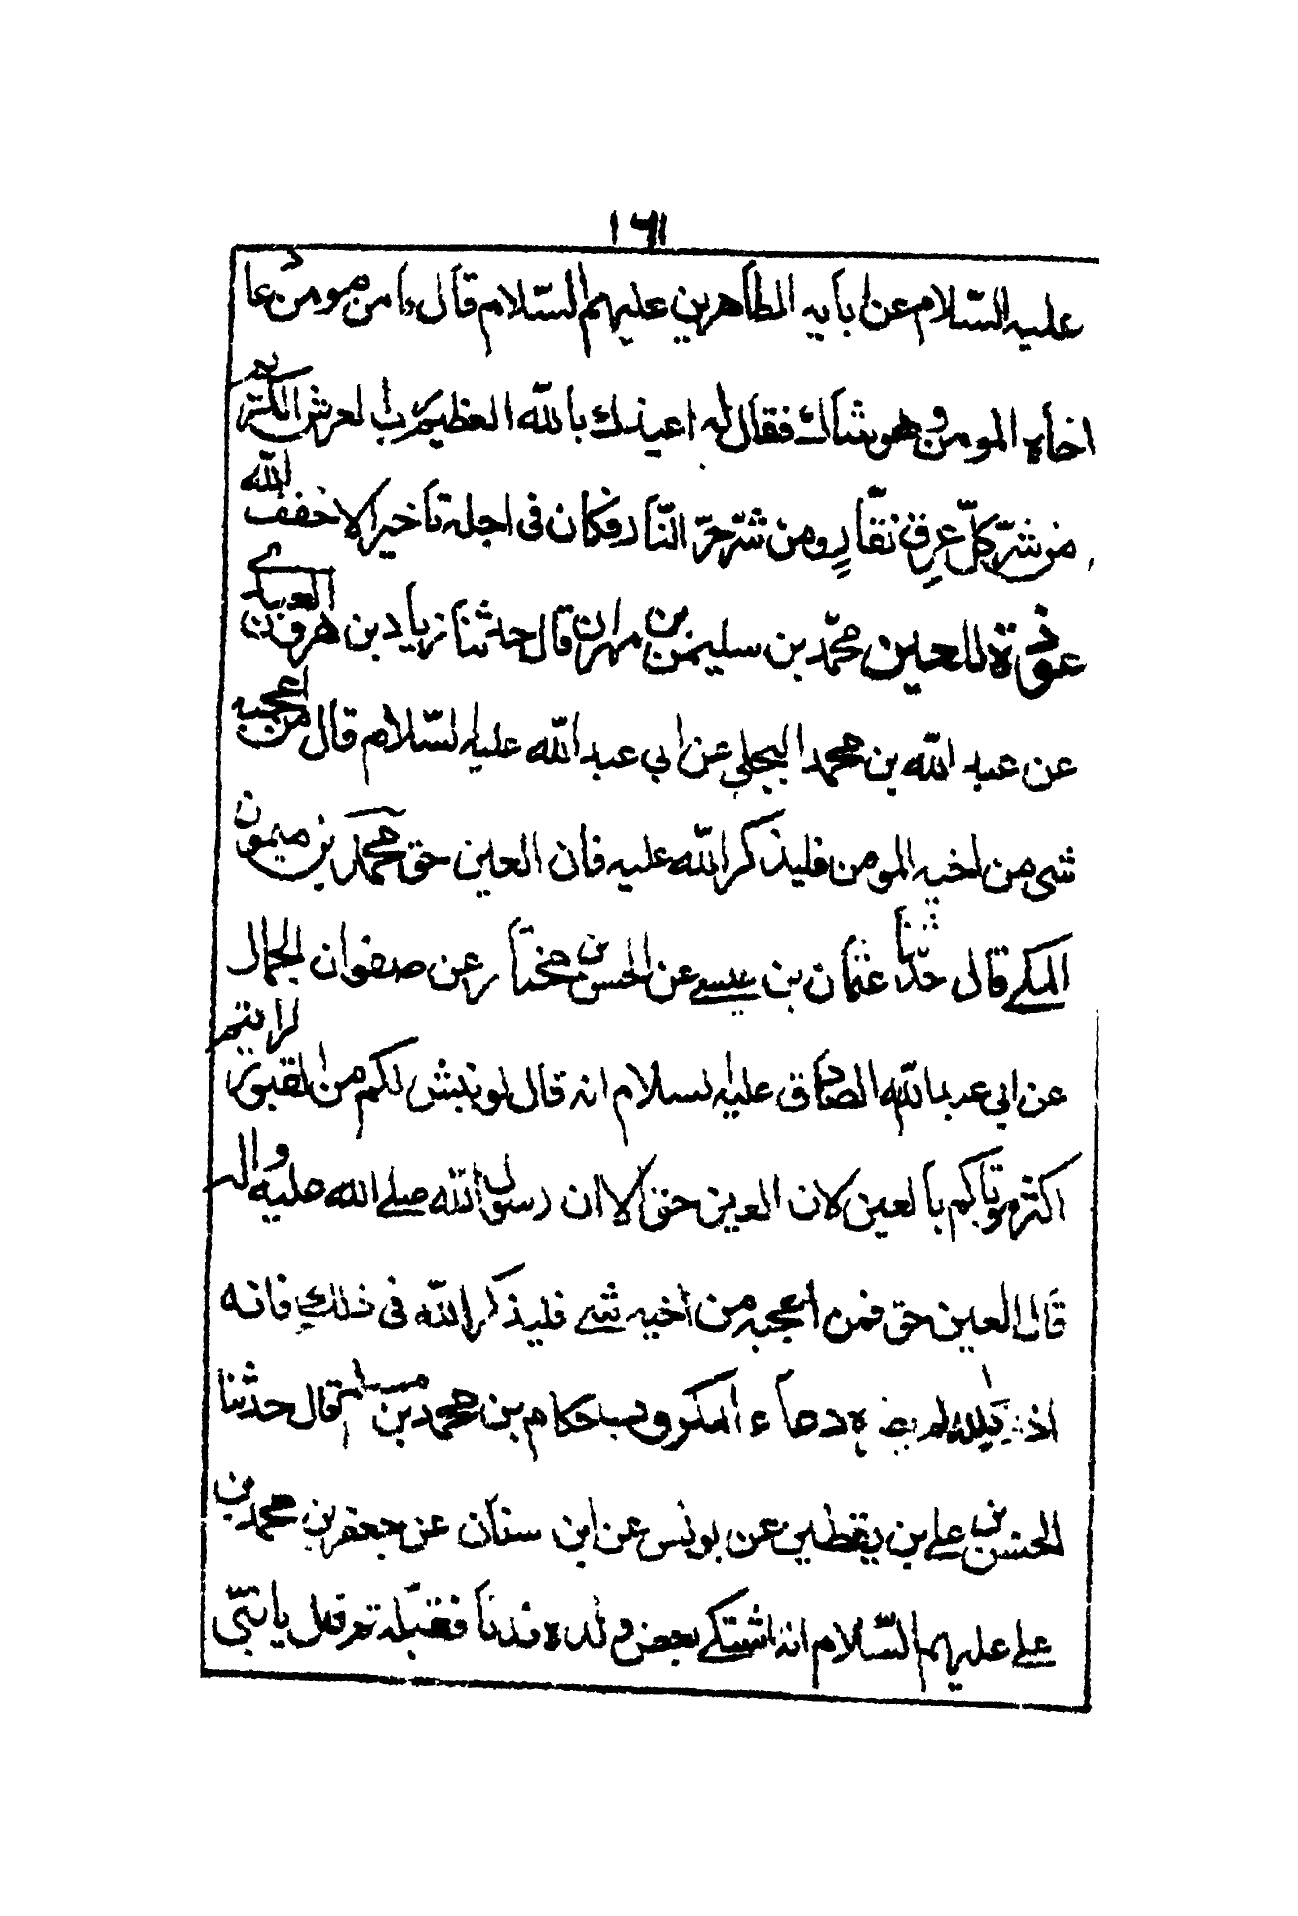 ١٦١
عليه السّلام عن اَبآئه الطاهرين عليهم السّلام قال ما من مومن عاد
اخاه المومن وهو شاك فقال له اعيذك بالله العظيم رب العرش الكريم
من شرّ كلّ عرق نقّار ومن شرّ حَرّ النّار فكان في اجله تاخير الا خفف الله
عوذة للعين محمّد بن سليمن بن مهران قال حدثنا زياد بن هرون العبدي
عن عبد الله بن محمد البجلي عن ابي عبد الله عليه السّلام قال من اعجبه
شي من اخيه المومن فليذكر الله عليه فان العين حق محمد بن ميمون
المكي قال حدّثنا عثمان بن عيسى عن الحسن بن مختار عن صفوان الجمال
عن ابي عبد الله الصادق عليه السلام انه قال لو نبش لكم من القبور لرايتم
اكثر موتاكم بالعين لان العين حق الا ان رسول الله صلى الله عليه واله
قال العين حق فمن اعجبه من اخيه شي فليذكر الله في ذلك فانه
اذا الله لم يضره دعاء المكروب حكام بن محمد بن مسلم قال حدثنا
الحسن بن علي بن يقطين عن يونس عن ابن سنان عن جعفر بن محمد بن
علي عليهم السّلام انه اشتكى بعض ولده فدنا فقبله ثم قال يا بنّي